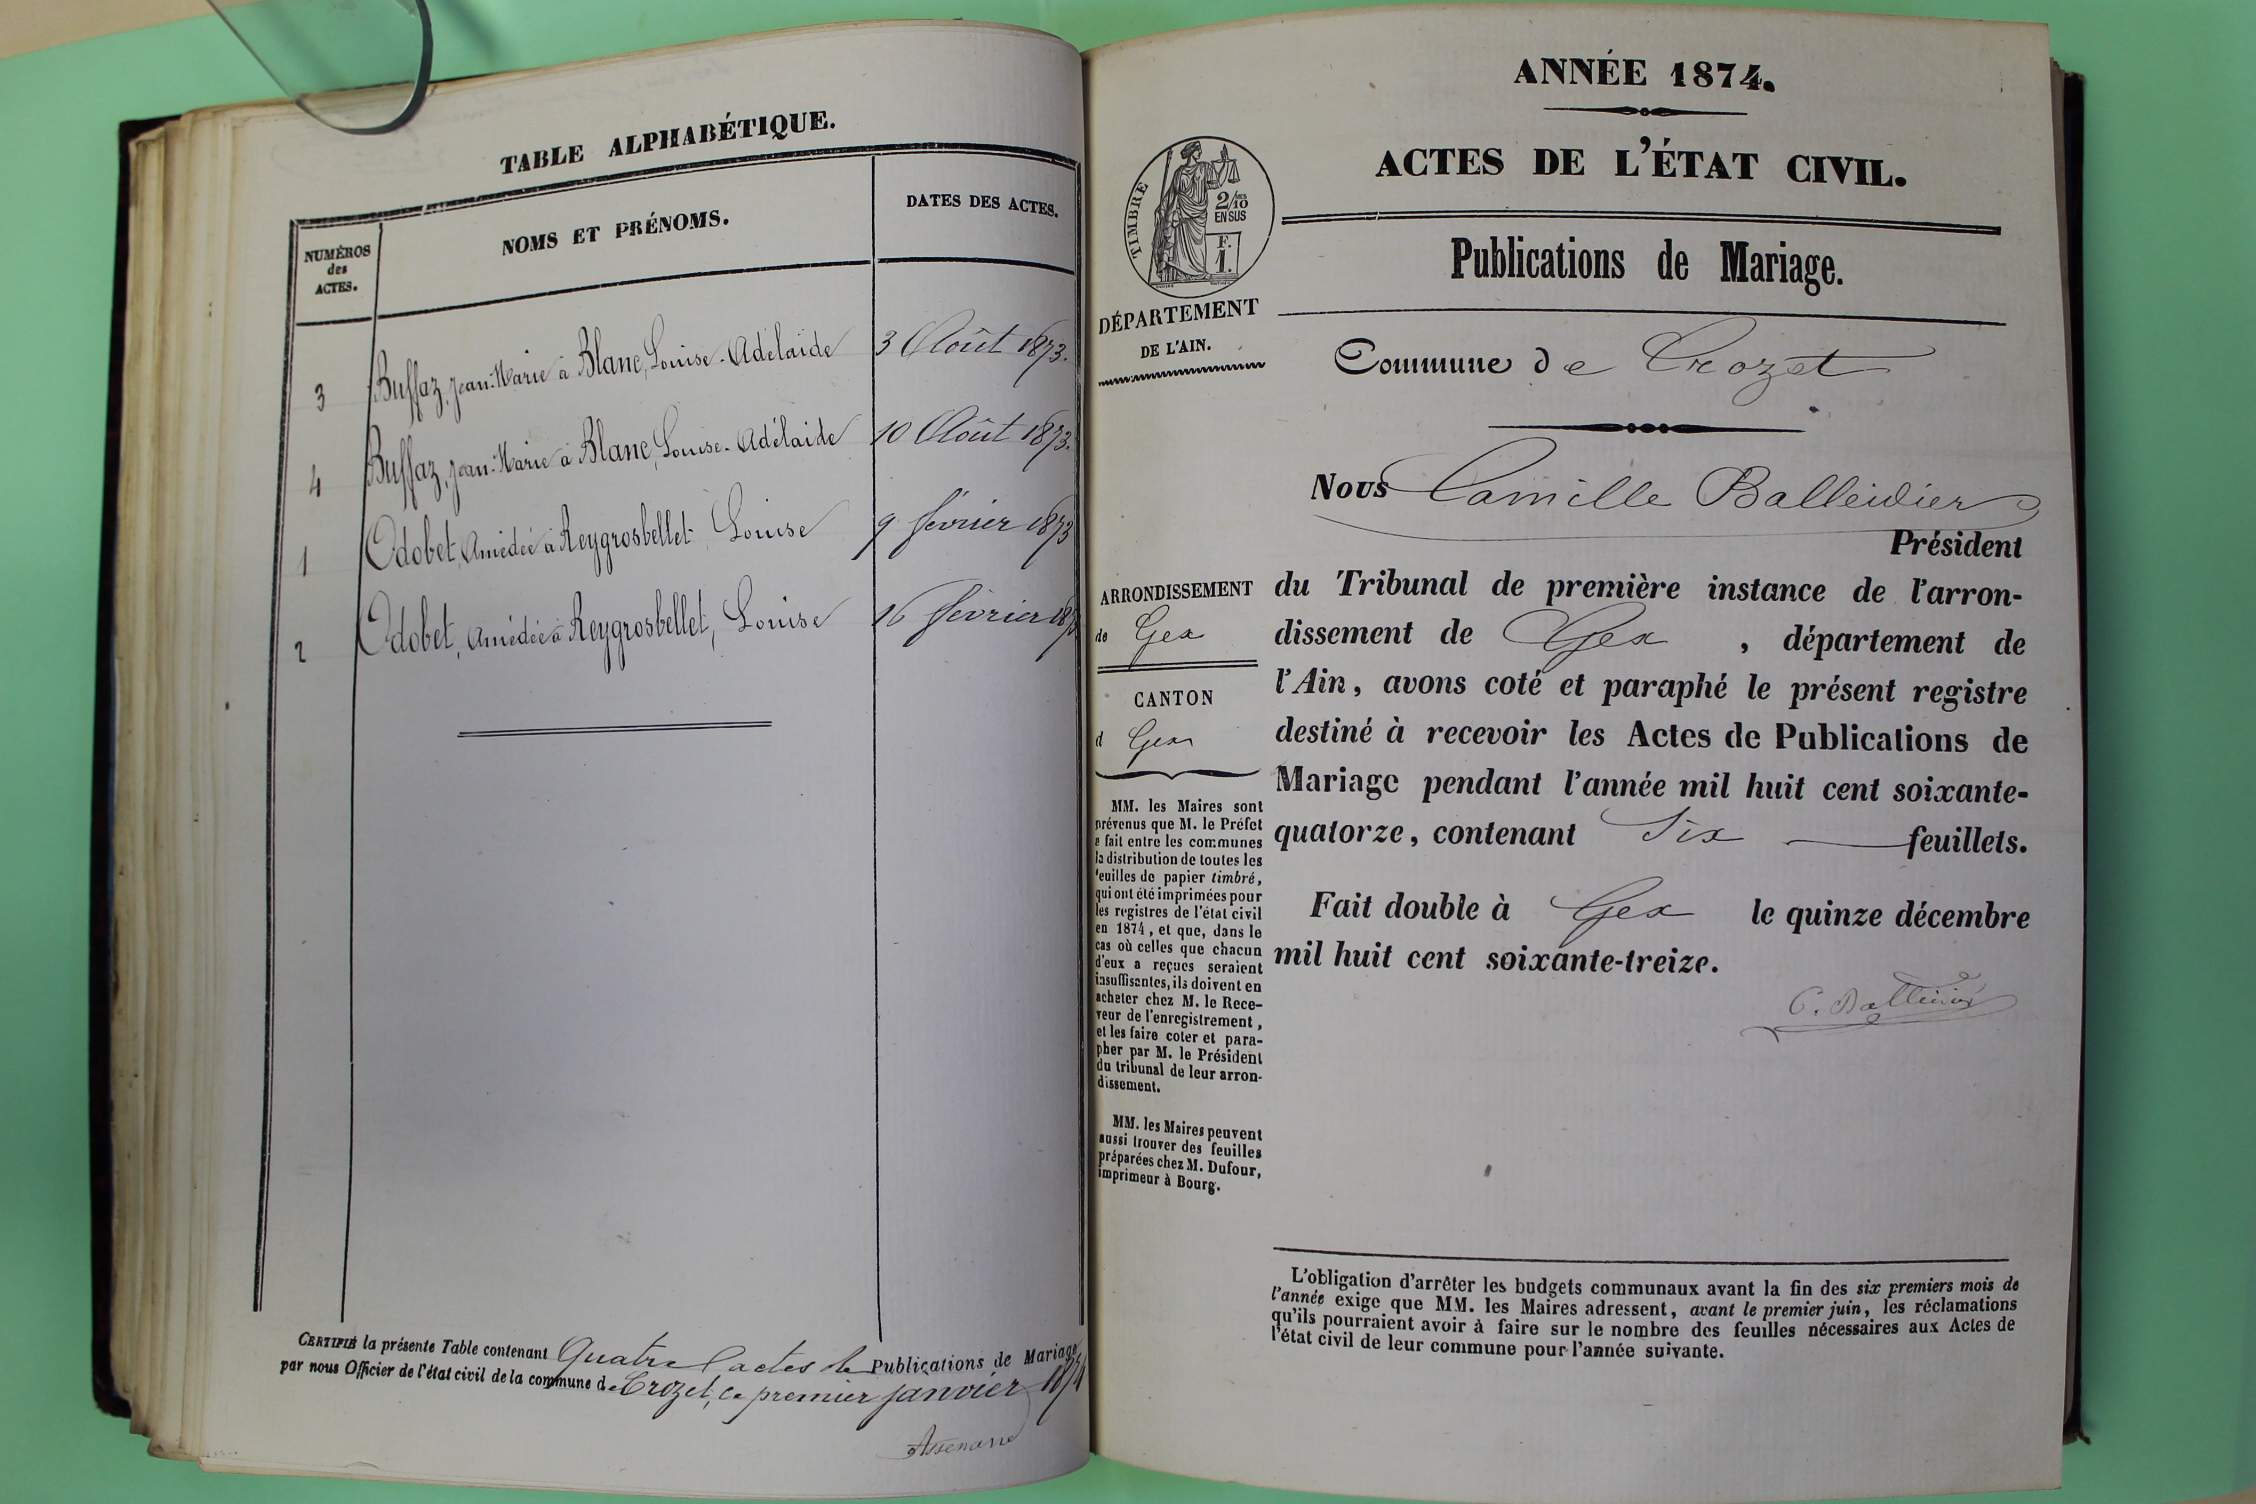 TABLE ALPHABÉTIQUE.
NUMÉROS
des
ACTES.
NOMS ET PRÉNOMS.
DATES DES ACTES.
3 Buffaz, Jean-Marie à Blanc, Louise-Adélaïde 3 Août 1873.
4 Buffaz, Jean-Marie à Blanc, Louise-Adélaïde 10 Août 1873.
1 Odobet, Amédée à Reygrosbellet Louise 9 février 1873
2 Odobet, Amédée à Reygrosbellet, Louise 16 février 1873
CERTIFIÉ la présente Table contenant Quatre actes de Publications de Mariage
par nous Officier de l'état civil de la commune de Crozet, ce premier janvier 1874
ANNÉE 1874.
ACTES DE L'ÉTAT CIVIL.
TIMBRE
2/10
EN SUS
F.
1.
Publications de Mariage.
DÉPARTEMENT
DE L'AIN.
Commune de Crozet
Nous Camille Balleidier
Président
du Tribunal de première instance de l'arron-
dissement de Gex, département de
l'Ain, avons coté et paraphé le présent registre
destiné à recevoir les Actes de Publications de
Mariage pendant l'année mil huit cent soixante-
quatorze, contenant Six feuillets.
Fait double à Gex le quinze décembre
mil huit cent soixante-treize.
C. Balleidier
ARRONDISSEMENT
de Gex
CANTON
d Gex
MM. les Maires sont
prévenus que M. le Préfet
a fait entre les communes
la distribution de toutes les
feuilles de papier timbré,
qui ont été imprimées pour
les registres de l'état civil
en 1874, et que, dans le
cas où celles que chacun
d'eux a reçues seraient
insuffisantes, ils doivent en
acheter chez M. le Rece-
veur de l'enregistrement,
et les faire coter et para-
pher par M. le Président
du tribunal de leur arron-
dissement.
MM. les Maires peuvent
aussi trouver des feuilles
préparées chez M. Dufour,
imprimeur à Bourg.
L'obligation d'arrêter les budgets communaux avant la fin des six premiers mois de
l'année exige que MM. les Maires adressent, avant le premier juin, les réclamations
qu'ils pourraient avoir à faire sur le nombre des feuilles nécessaires aux Actes de
l'état civil de leur commune pour l'année suivante.